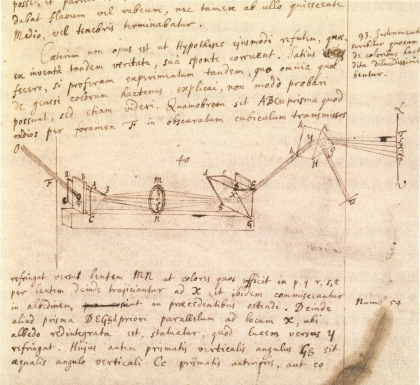 dabat flavum vel rubeum, nec tamen ab ullo quiescente
Medio, vel tenebris terminabatur.
Cæterum non opus est ut Hypotheses ejusmodi refutem, quæ
ex inventa tandem veritate, sua sponte corruent. Satius
fecero, si proferam experimentum tandem, quo omnia quæ
de genesi colorum hactenus explicui, non modo probari
possunt, sed etiam videri. Quamobrem sit ABC prisma quod
radios per foramen F in obscuratum cubiculum transmissos
93. Instrumentum
de coloribus hac
tenus
40
O
F
A
B
C
M
N
D
G
H
Y
refringat versus lentem MN et colores quos efficit in p, q, r, s, t
per lentem deinde trajiciantur ad X et ibidem commisceantur
in albedinem, in præcedentibus ostendi. Deinde
aliud prisma DEG priori parallelum ad locum X, ubi
albedo redintegrata sit, statuatur, quod lucem versus Y
refringat. Hujus autem prismatis verticalis angulus Gg sit
æqualis angulo verticali Cc prismatis anterioris, aut eo
Numb 54